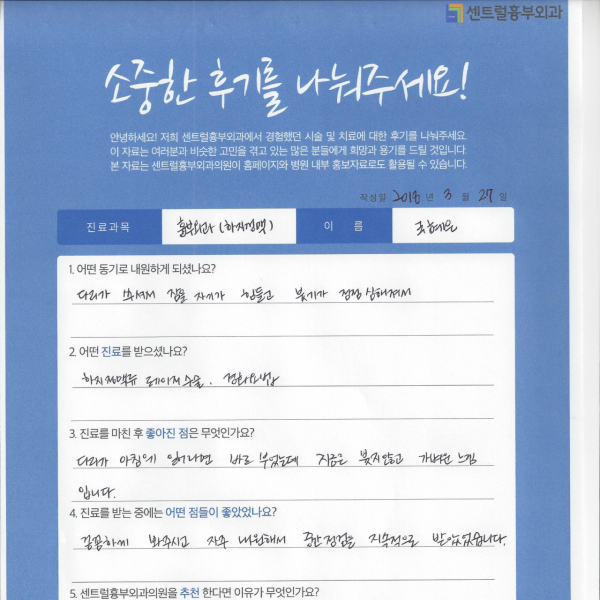 센트럴흉부외과
소중한 후기를 나눠주세요!
안녕하세요! 저희 센트럴흉부외과에서 경험했던 시술 및 치료에 대한 후기를 나눠주세요.
이 자료는 여러분과 비슷한 고민을 겪고 있는 많은 분들에게 희망과 용기를 드릴 것입니다.
본 자료는 센트럴흉부외과의원이 홈페이지와 병원 내부 홍보자료로도 활용될 수 있습니다.
작성일 2018 년 3 월 27 일
진료과목 흉부외과 (하지정맥) 이 름
1. 어떤 동기로 내원하게 되셨나요?
다리가 쑤셔서 잠을 자기가 힘들고 붓기가 점점 심해져서
2. 어떤 진료를 받으셨나요?
하지정맥류 레이저수술. 경화요법
3. 진료를 마친 후 좋아진 점은 무엇인가요?
다리가 아침에 일어나면 바로 부었는데 지금은 붓지않고 가벼운 느낌
입니다.
4. 진료를 받는 중에는 어떤 점들이 좋았었나요?
꼼꼼하게 봐주시고 자주 내원해서 중간점검을 지속적으로 받았었습니다.
5. 센트럴흉부외과의원을 추천 한다면 이유가 무엇인가요?